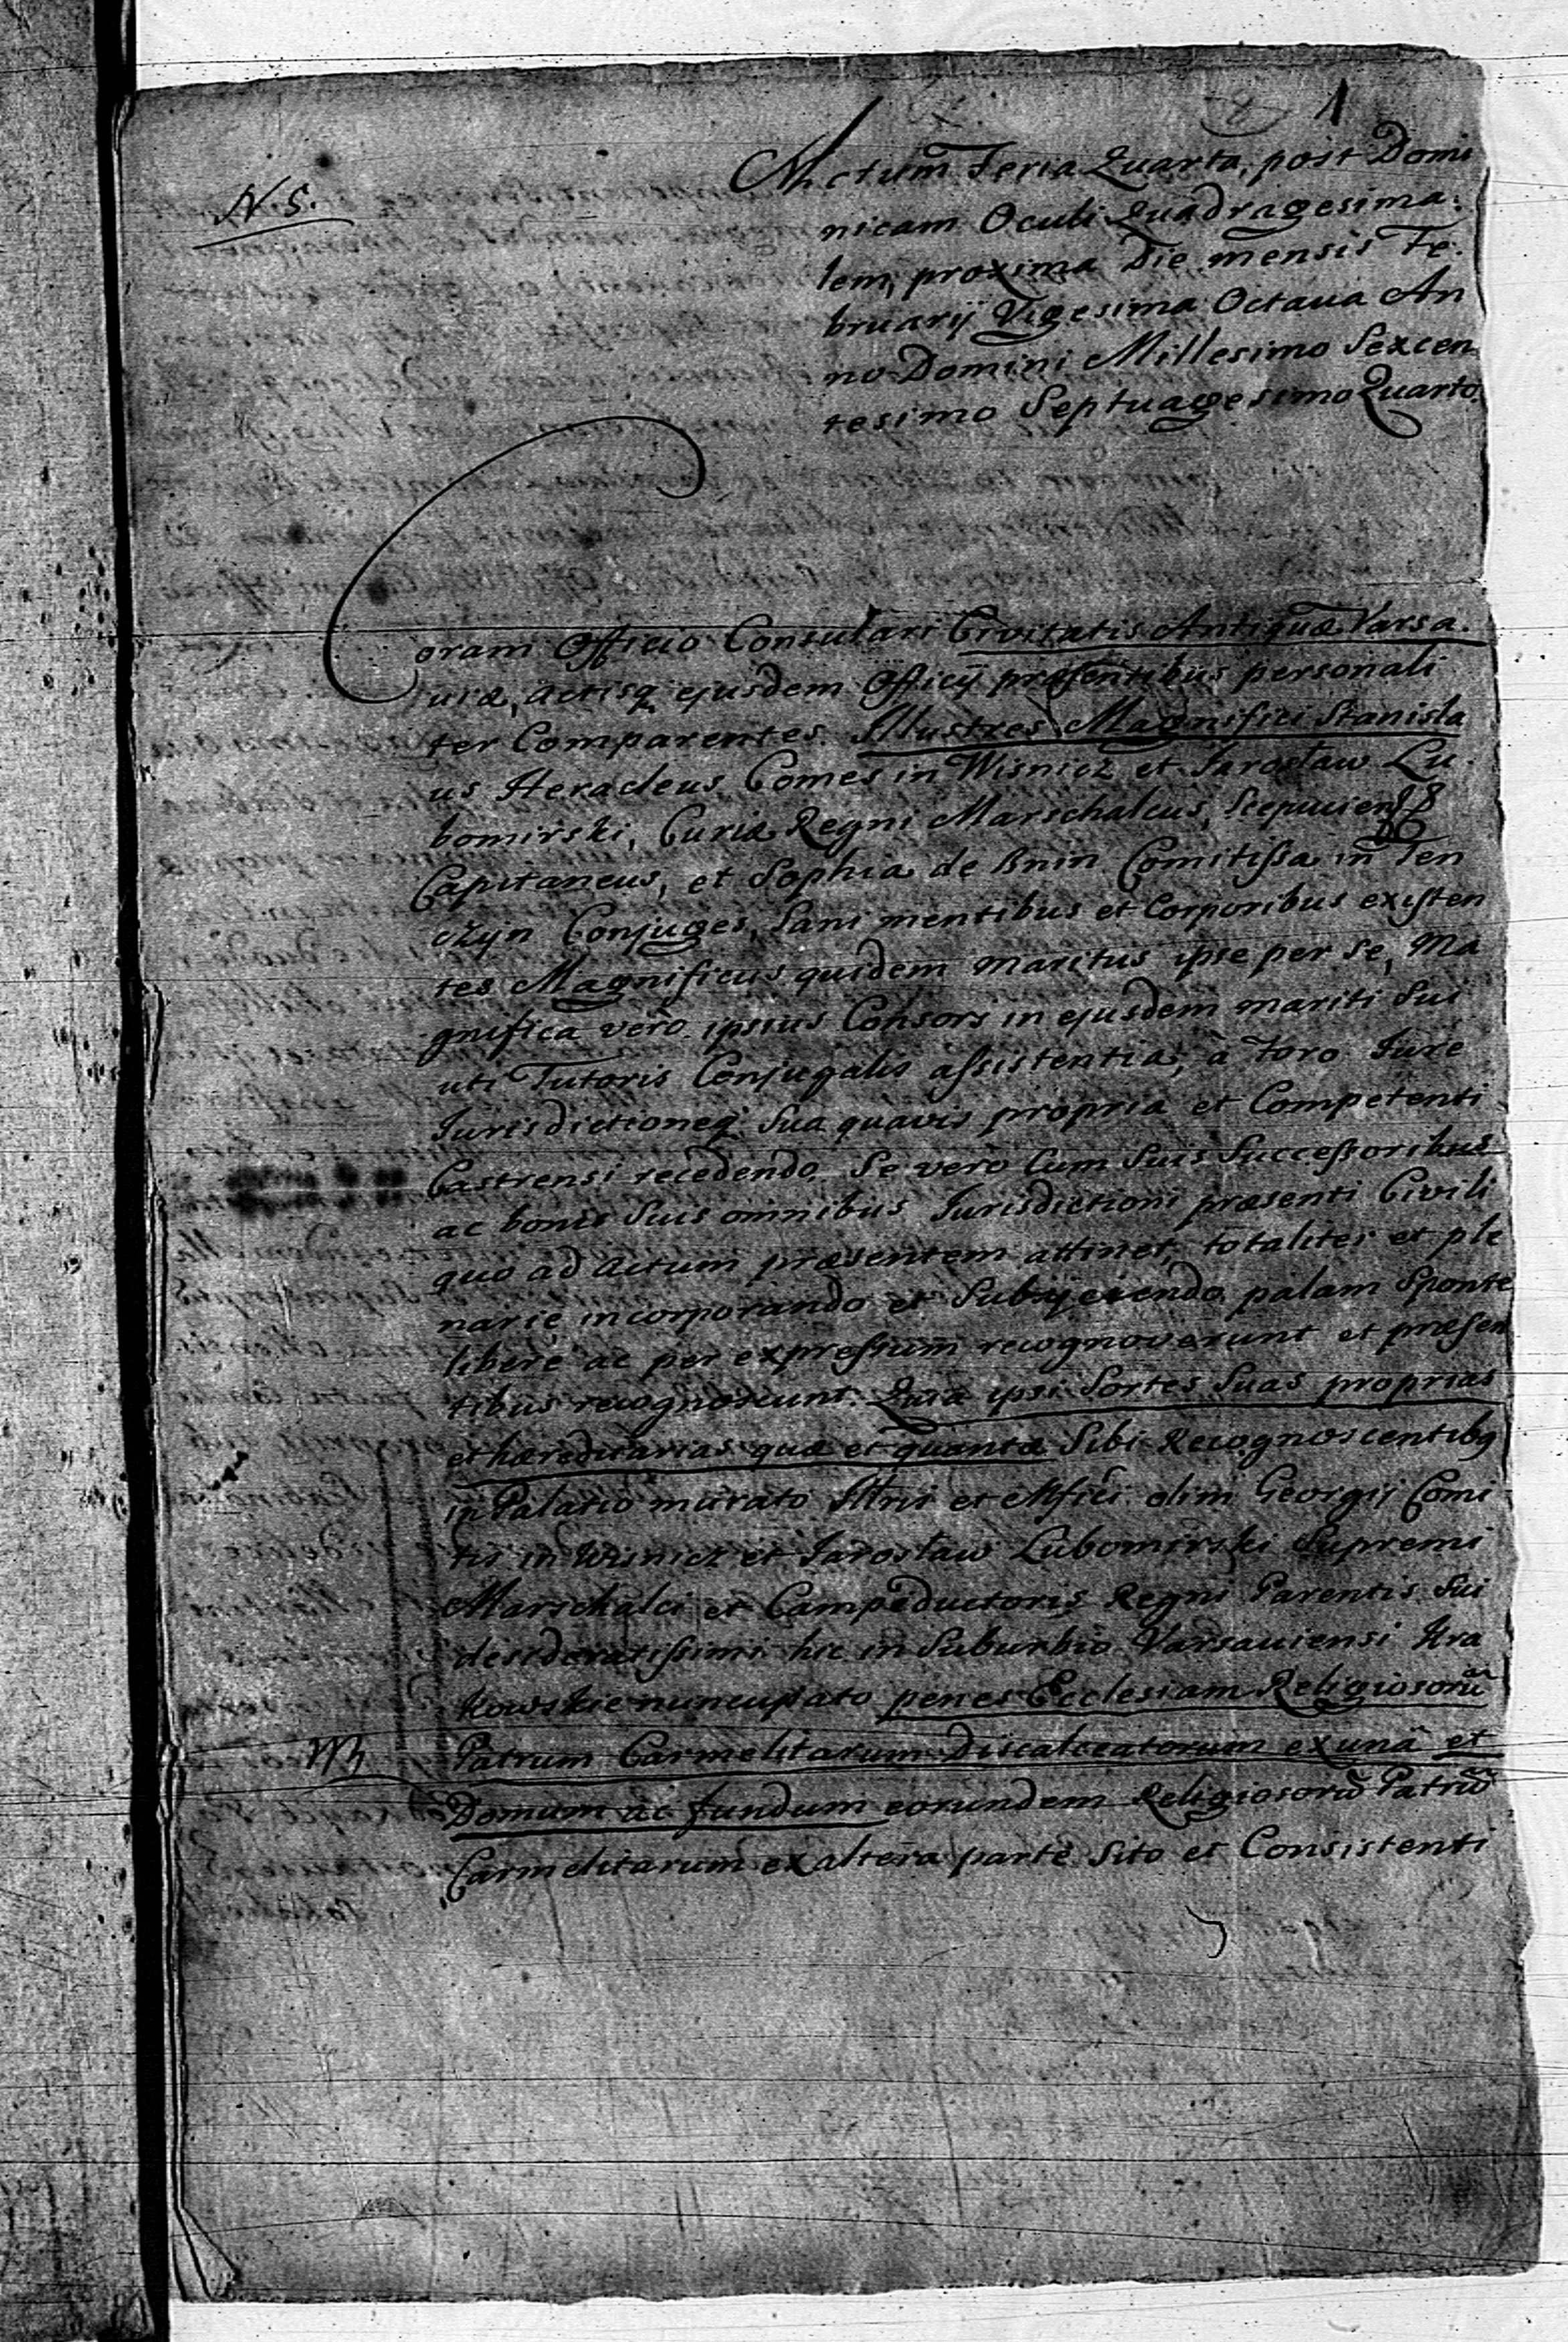 1
N. 5.
Actum Feria Quarta, post Domi
nicam Oculi Quadragesima:
lem, proxima Die mensis Fe:
bruarij Vigesima Octava An
no Domini Millesimo Sexcen
tesimo Septuagesimo Quarto.
Coram Officio Consulari Civitatis Antiquæ Varsa.
uiæ, actisq ejusdem Officij præsentibus personali
ter Comparentes. Illustres Magnifici Stanisla
us Heracleus Comes in Wisnicz et Jarosław Lu.
bomirski, Curiæ Regni Marschalcus, Scepuien
Capitaneus, et Sophia de Bnin Comitissa in Ten
czyn Conjuges, Sani mentibus et Corporibus existen
tes Magnificus quidem maritus ipse per se, Ma
gnifica verò ipsius Consors in ejusdem mariti Sui
uti Tutoris Conjugalis assistentia, à foro Jure
Jurisdictioneq Sua quavis propria et Competenti
Castrensi recedendo, Se vero Cum Suis Successoribus
ac bonis Suis omnibus Jurisdictioni præsenti Civili
quo ad actum præsentem attinet, totaliter et ple
nariè incorporando et Subijciendo, palam Sponte
liberè ac per expressum recognoverunt et præsen
tibus recognoscunt. Quia ipsi Sortes Suas proprias
et hæreditarias quæ et quantæ Sibi Recognoscentibq
in Palatio murato Illris et Mfici olim Georgij Comi
tis in Wisnicz et Jarosław Lubomirski Supremi
Marschalci et Campiductoris Regni Parentis Sui
desideratissimi hic in Suburbio Varsauiensi Kra
kowskie nuncupato penes Ecclesiam Religiosorū
Patrum Carmelitarum Discalceatorum ex unâ et
Domum ac fundum eorundem Religiosorū Patrū
Carmelitarum ex altera parte Sito et Consistenti